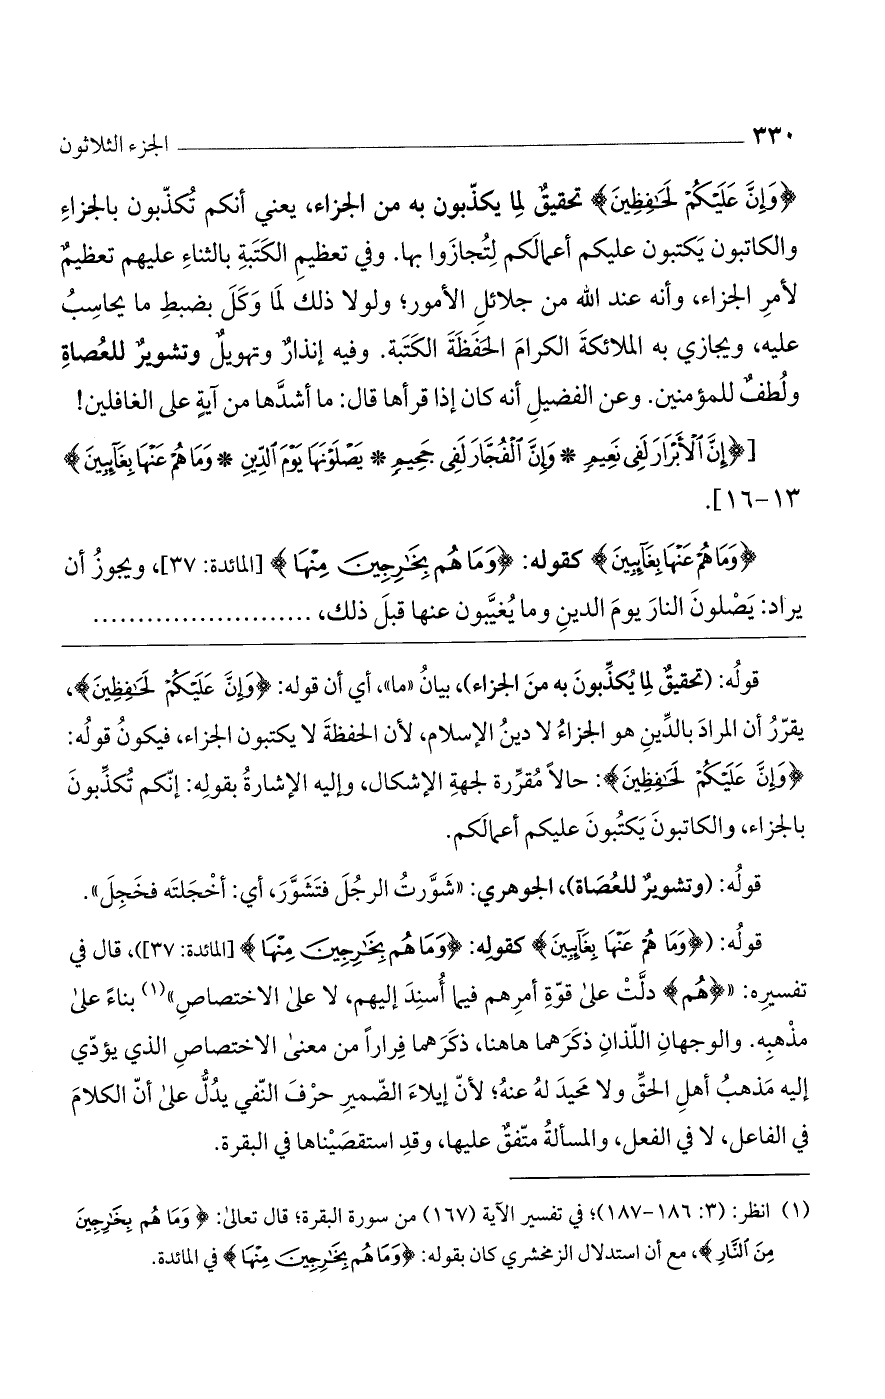 ٣٣٠ الجزء الثلاثون
﴿وَإِنَّ عَلَيْكُمْ لَحَافِظِينَ﴾ تحقيقٌ لِما يكذّبون به من الجزاء، يعني أنكم تُكذّبون بالجزاءِ
والكاتبون يَكتبون عليكم أعمالَكم لِتُجازَوا بها. وفي تعظيمِ الكَتَبةِ بالثناءِ عليهم تعظيمٌ
لأمرِ الجزاء، وأنه عند الله من جلائلِ الأمور؛ ولولا ذلك لَمَا وَكَلَ بضبطِ ما يحاسِبُ
عليه، ويجازي به الملائكةَ الكرامَ الحَفَظَةَ الكَتَبة. وفيه إنذارٌ وتهويلٌ وتشويرٌ للعُصاةِ
ولُطفٌ للمؤمنين. وعن الفضيلِ أنه كان إذا قرأها قال: ما أشدَّها من آيةٍ على الغافلين!
[﴿إِنَّ ٱلْأَبْرَارَ لَفِى نَعِيمٍ * وَإِنَّ ٱلْفُجَّارَ لَفِى جَحِيمٍ * يَصْلَوْنَهَا يَوْمَ ٱلدِّينِ * وَمَا هُمْ عَنْهَا بِغَآئِبِينَ﴾
١٣-١٦].
﴿وَمَا هُمْ عَنْهَا بِغَآئِبِينَ﴾ كقوله: ﴿وَمَا هُم بِخَٰرِجِينَ مِنْهَا﴾ [المائدة: ٣٧]، ويجوزُ أن
يراد: يَصْلونَ النارَ يومَ الدينِ وما يُغيَّبون عنها قبلَ ذلك، .........................
قولُه: (تحقيقٌ لِما يُكذِّبونَ به منَ الجزاء)، بيانُ «ما»، أي أن قوله: ﴿وَإِنَّ عَلَيْكُمْ لَحَٰفِظِينَ﴾،
يقرّرُ أن المرادَ بالدِّينِ هو الجزاءُ لا دينُ الإسلام، لأن الحفظةَ لا يكتبون الجزاء، فيكونُ قولُه:
﴿وَإِنَّ عَلَيْكُمْ لَحَٰفِظِينَ﴾: حالاً مُقرِّرة لجهةِ الإشكال، وإليه الإشارةُ بقولِه: إنّكم تُكذِّبونَ
بالجزاء، والكاتبونَ يَكتُبونَ عليكم أعمالَكم.
قولُه: (وتشويرٌ للعُصَاة)، الجوهري: «شَوَّرتُ الرجُلَ فتَشَوَّرَ، أي: أخْجَلتَه فخَجِلَ».
قولُه: (﴿وَمَا هُمْ عَنْهَا بِغَآئِبِينَ﴾ كقولِه: ﴿وَمَا هُم بِخَٰرِجِينَ مِنْهَا﴾ [المائدة: ٣٧])، قال في
تفسيرِه: «﴿هُم﴾ دلَّتْ علىٰ قوّةِ أمرِهم فيما أُسنِدَ إليهم، لا علىٰ الاختصاصِ»(١) بناءً علىٰ
مذْهبِه. والوجهانِ اللّذانِ ذكَرَهما هاهنا، ذكَرَهما فِراراً من معنىٰ الاختصاصِ الذي يؤدّي
إليه مَذهبُ أهلِ الحقِّ ولا محَيدَ لهُ عنهُ؛ لأنّ إيلاءَ الضّميرِ حرْفَ النّفي يدُلُّ علىٰ أنّ الكلامَ
في الفاعل، لا في الفعل، والمسألةُ متّفقٌ عليها، وقدِ استقصَيْناها في البقرة.
(١) انظر: (٣: ١٨٦-١٨٧)؛ في تفسير الآية (١٦٧) من سورة البقرة؛ قال تعالىٰ: ﴿وَمَا هُم بِخَٰرِجِينَ
مِنَ ٱلنَّارِ﴾، مع أن استدلال الزمخشري كان بقوله: ﴿وَمَا هُم بِخَٰرِجِينَ مِنْهَا﴾ في المائدة.